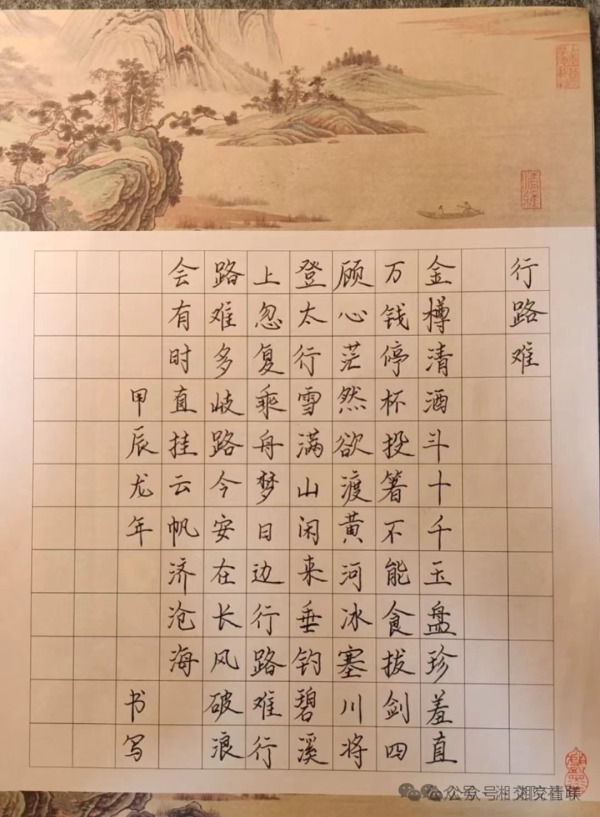 行路难
金樽清酒斗十千玉盘珍羞直
万钱停杯投箸不能食拔剑四
顾心茫然欲渡黄河冰塞川将
登太行雪满山闲来垂钓碧溪
上忽复乘舟梦日边行路难行
路难多岐路今安在长风破浪
会有时直挂云帆济沧海
甲辰龙年 书写
公众号·湘